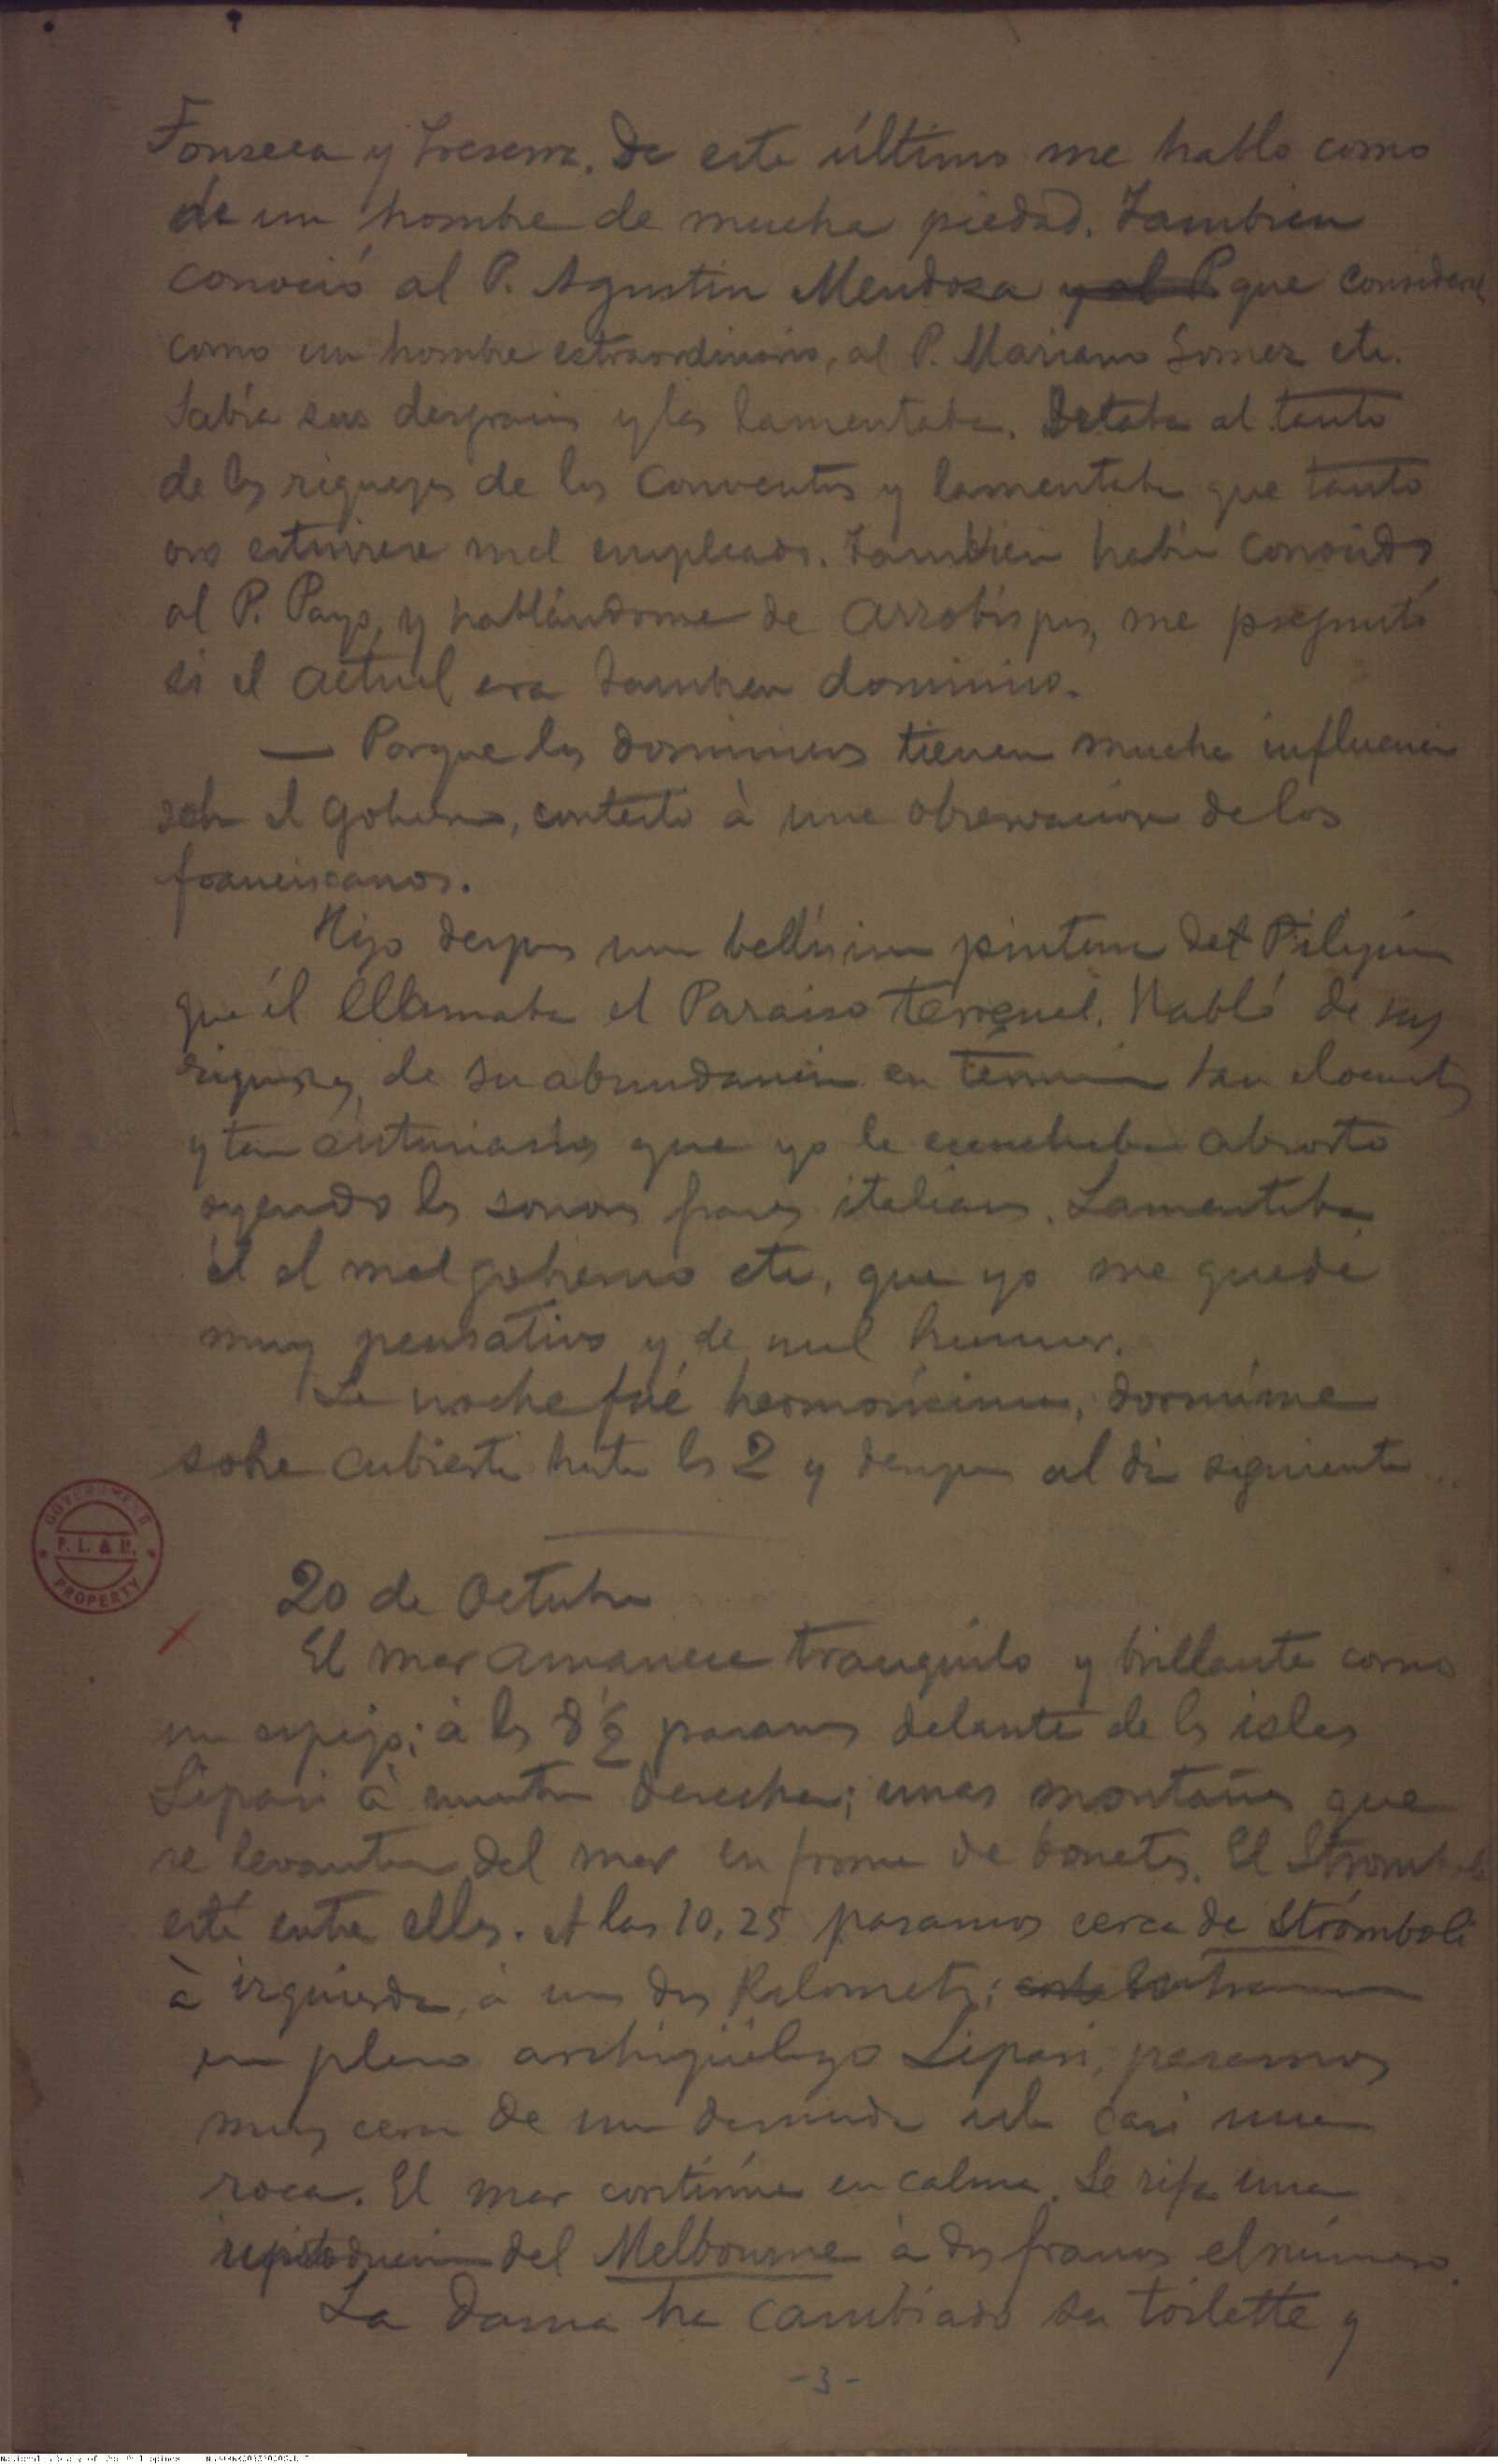 Fonseca y Treserra. De este último me habló como
de un hombre de mucha piedad. Tambien
conoció al P. Agustin Mendoza y al P. que considera
como un hombre extraordinario, al P. Mariano Gomez etc.
Sabía sus desgracias y las lamentaba. Estaba al tanto
de las riquezas de los conventos y lamentaba que tanto
oro estuviese mal empleado. Tambien había conocido
al P. Payo, y hablándome de Arzobispos, me preguntó
si el actual era tambien dominico.
— Porque los dominicos tienen mucha influencia
sobre el gobierno, contestó à una observacion de los
franciscanos.
Hizo despues una bellísima pintura de Filipinas
que él llamaba el Paraiso terrenal. Habló de sus
riquezas, de su abundancia en terminos tan elocuentes
y tan entusiastas que yo le escuchaba absorto
oyendo las sonoras frases italianas. Lamentaba
él el mal gobierno etc, que yo me quedé
muy pensativo y de mal humor.
La noche fué hermosísima, dormíme
sobre cubierta hasta las 2 y despues al dia siguiente
20 de Octubre
El mar amanece tranquilo y brillante como
un espejo; à las 8 ½ pasamos delante de las islas
Lipari à nuestra derecha; unas montañas que
se levantan del mar en forma de bonetes. El Stromboli
está entre ellas. A las 10,25 pasamos cerca de Strómboli
à izquierda, à unos dos Kilometros;
en pleno archipiélago Lipari, pasamos
muy cerca de una desnuda isla casi una
roca. El mar continúa en calma. Se rifa una
reproduccion del Melbourne à dos francos el número.
La dama ha cambiado su toilette y
-3-
GOVERNMENT
P. L. & M.
PROPERTY